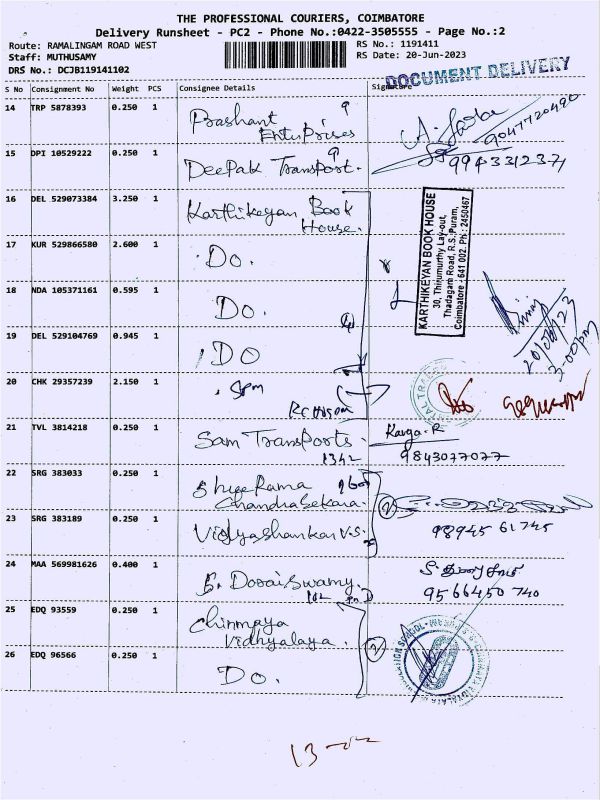 THE PROFESSIONAL COURIERS, COIMBATORE
Delivery Runsheet - PC2 - Phone No.:0422-3505555 - Page No.:2
Route: RAMALINGAM ROAD WEST RS No.: 1191411
Staff: MUTHUSAMY RS Date: 20-Jun-2023
DRS No.: DCJB119141102
DOCUMENT DELIVERY
S No Consignment No Weight PCS Consignee Details Signature
14 TRP 5878393 0.250 1 Prashant Enterprises
9047720490
15 DPI 10529222 0.250 1 Deepak Transport.
16 DEL 529073384 3.250 1 Karthikeyan Book House.
KARTHIKEYAN BOOK HOUSE
30, Thirumurthy Lay-out,
Thadagam Road, R.S. Puram,
Coimbatore - 641 002. Ph : 2450467
17 KUR 529866580 2.600 1 Do.
18 NDA 105371161 0.595 1 Do.
19 DEL 529104769 0.945 1 DO
3-00pm
20 CHK 29357239 2.150 1 Spm
21 TVL 3814218 0.250 1 Sam Transports
9843077077
22 SRG 383033 0.250 1 Shree Rama Chandrasekara.
23 SRG 383189 0.250 1 Vidyashankar V.S.
98945 61745
24 MAA 569981626 0.400 1 Doraiswamy.
9566450740
25 EDQ 93559 0.250 1 Chinmaya Vidhyalaya.
26 EDQ 96566 0.250 1 Do.